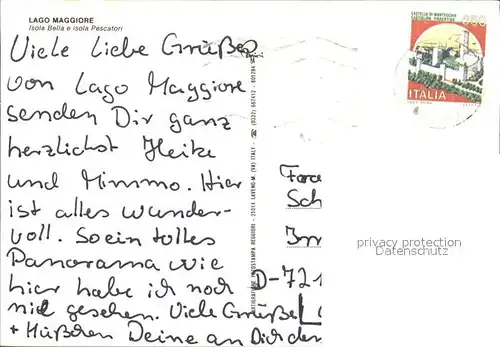 LAGO MAGGIORE
Isola Bella e isola Pescatori
Viele liebe Grüße
von Lago Maggiore
senden Dir ganz
herzlichst Heike
und Mimmo. Hier
ist alles wunder-
voll. So ein tolles
Panorama wie
hier habe ich noch
nie gesehen. Viele Grüße
+ Küßchen Deine an Dich
CASTELLO DI MONTECCHIO
CASTIGLION FIORENTINO
850
ITALIA
privacy protection
Datenschutz
D-721